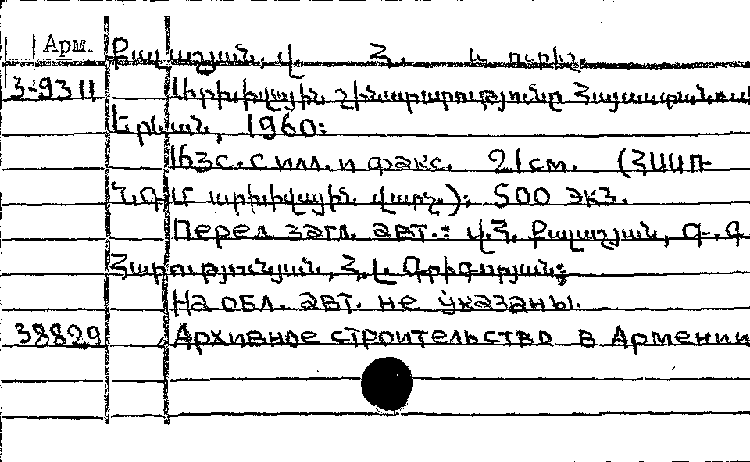 Арм. Քալաշյան, Վ. Հ. և ուրիշ.
3-9311 Արխիվային շինարարությունը Հայաստանում
Երևան, 1960:
163с. с илл. и факс. 21см. (ՀՍՍՌ
ՆԳՄ արխիվային վարչ.): 500 экз.
Перед загл. авт.: Վ.Հ. Քալաշյան, Գ.Գ.
Հարությունյան, Հ.Լ. Գրիգորյան:
На обл. авт. не указаны.
38829 Архивное строительство в Армении